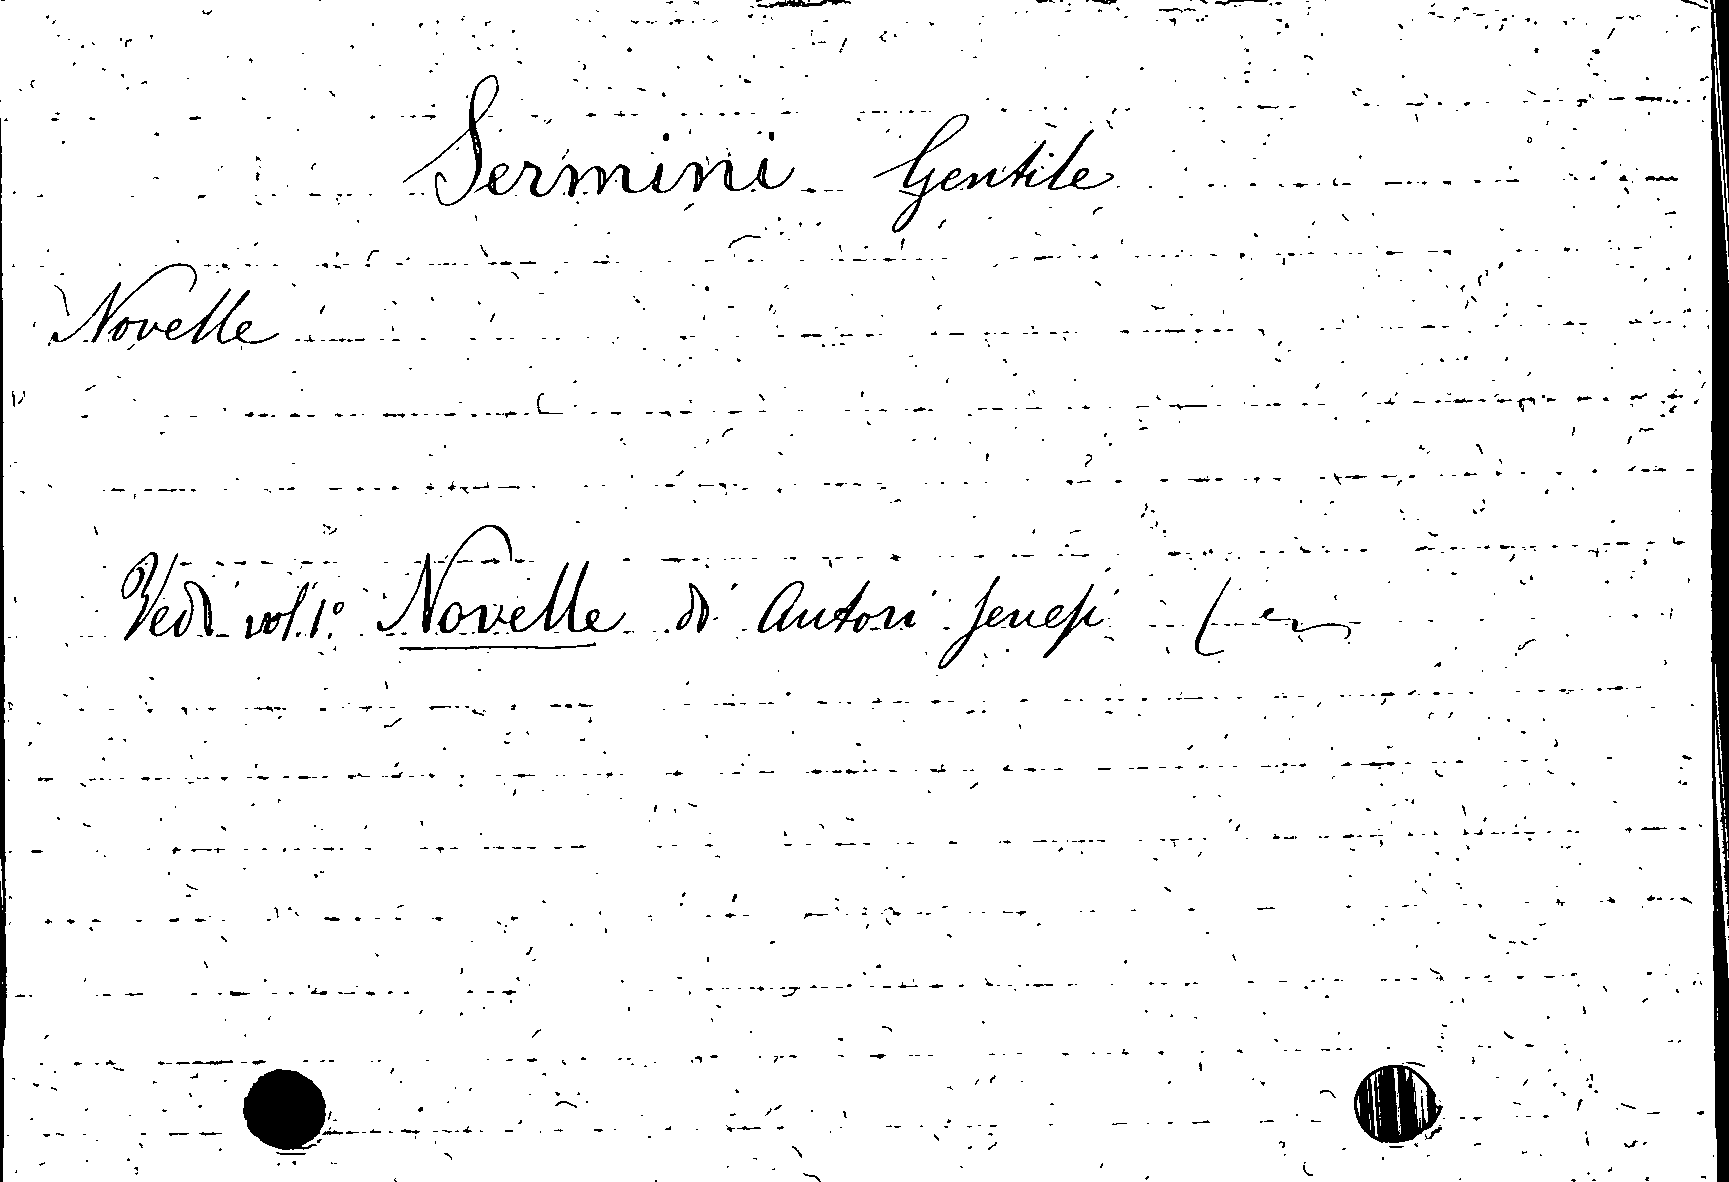 Sermini Gentile
Novelle
Vedi vol. 1º Novelle di Autori Senesi